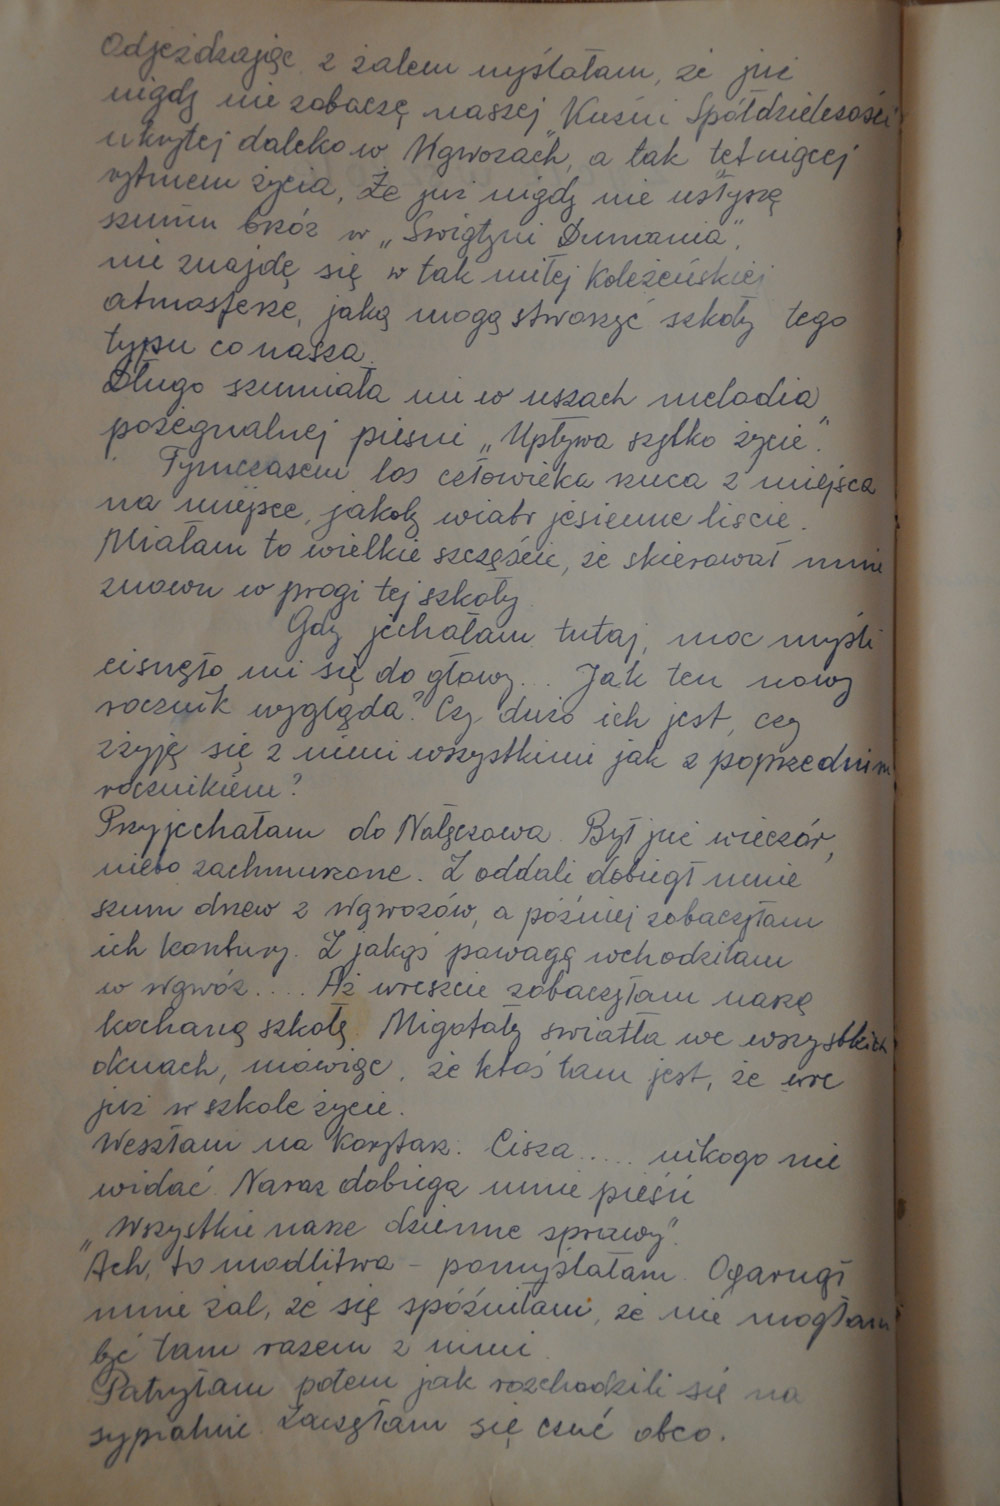 Odjeżdżając z żalem myślałam, że już
nigdy nie zobaczę naszej „Kuźni Spółdzielczości
ukrytej daleko w Wąwozach, a tak tętniącej
rytmem życia, Że już nigdy nie usłyszę
szumu brzóz w „Świątyni Dumania",
nie znajdę się w tak miłej koleżeńskiej
atmosferze, jaką mogą stworzyć szkoły tego
typu co nasza.
Długo szumiała mi w uszach melodia
pożegnalnej pieśni „Upływa szybko życie".
Tymczasem los człowieka rzuca z miejsca
na miejsce, jakoby wiatr jesienne liście.
Miałam to wielkie szczęście, że skierował mnie
znowu w progi tej szkoły.
Gdy jechałam tutaj, moc myśli
cisnęło mi się do głowy... Jak ten nowy
rocznik wygląda? Czy dużo ich jest, czy
zżyję się z nimi wszystkimi jak z poprzednim
rocznikiem?
Przyjechałam do Nałęczowa. Był już wieczór,
niebo zachmurzone. Z oddali dobiegł mnie
szum drzew z wąwozów, a później zobaczyłam
ich kontury. Z jakąś powagą wchodziłam
w wąwóz.... Aż wreszcie zobaczyłam naszą
kochaną szkołę. Migotały światła we wszystkich
oknach, mówiąc, że ktoś tam jest, że wre
już w szkole życie.
Weszłam na korytarz. Cisza..... nikogo nie
widać. Naraz dobiega mnie pieśń
„Wszystkie nasze dzienne sprawy".
"Ach, to modlitwa – pomyślałam. Ogarnął
mnie żal, że się spóźniłam, że nie mogłam
być tam razem z nimi.
Patrzyłam potem jak rozchodzili się na
sypialnie. Zaczęłam się czuć obco.